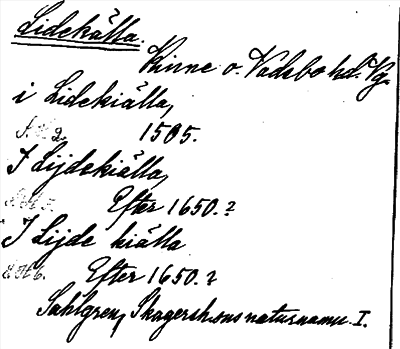 Lidekälla.
Kinne o. Vadsbo hd. Vg.
i Lidekiälla,
2. 1505.
I Lijdekiälla,
Efter 1650.?
I Lijde kiälla
6. Efter 1650.?
Sahlgren, Skagershons naturnamn I.